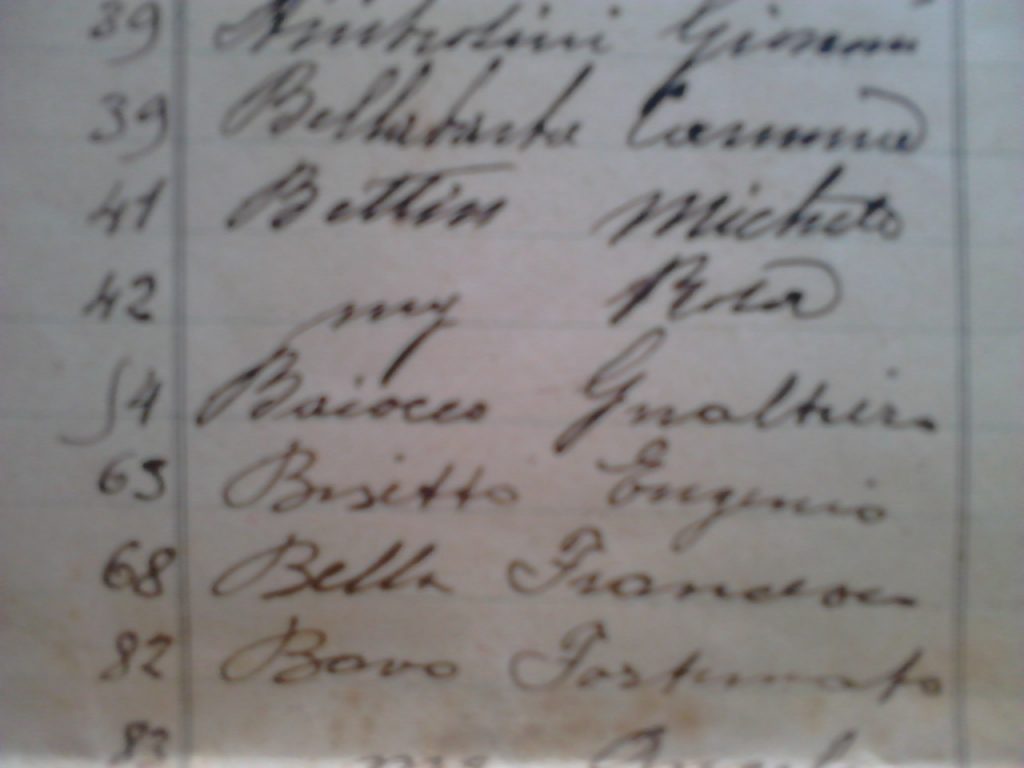 39 Giovanni
39 Bellabarba
41 Bettin Michele
42 Rosa
54 Baiocco Gualtiero
65 Bisetto Eugenio
68 Bella Francesco
82 Bovo Fortunato
83